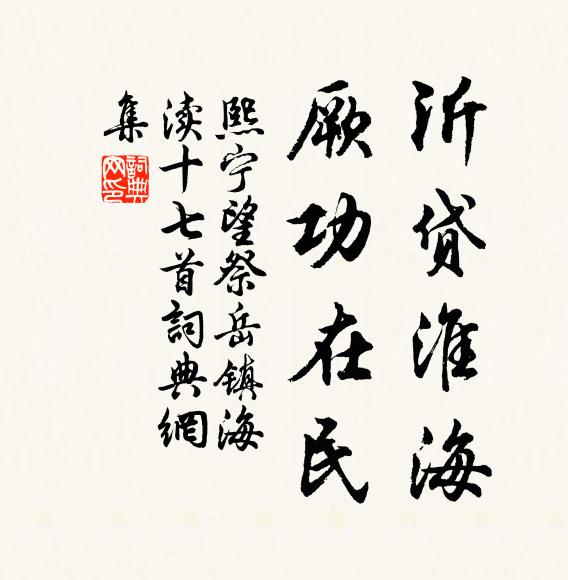 沂贷淮海
厥功在民
熙宁望祭岳镇海
渎十七首詞典網
集
詞典网印